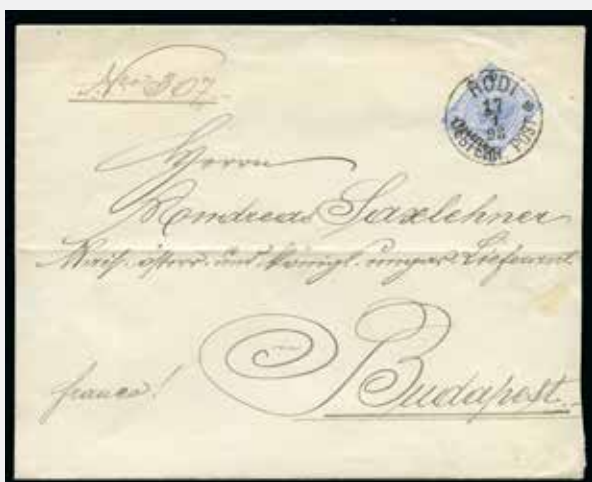 Nro 807
RODI
17
1
98
OESTERR. POST
Herrn
Andreas Saxlehner
Kais. österr. und königl. ungar. Lieferant
franco!
Budapest.